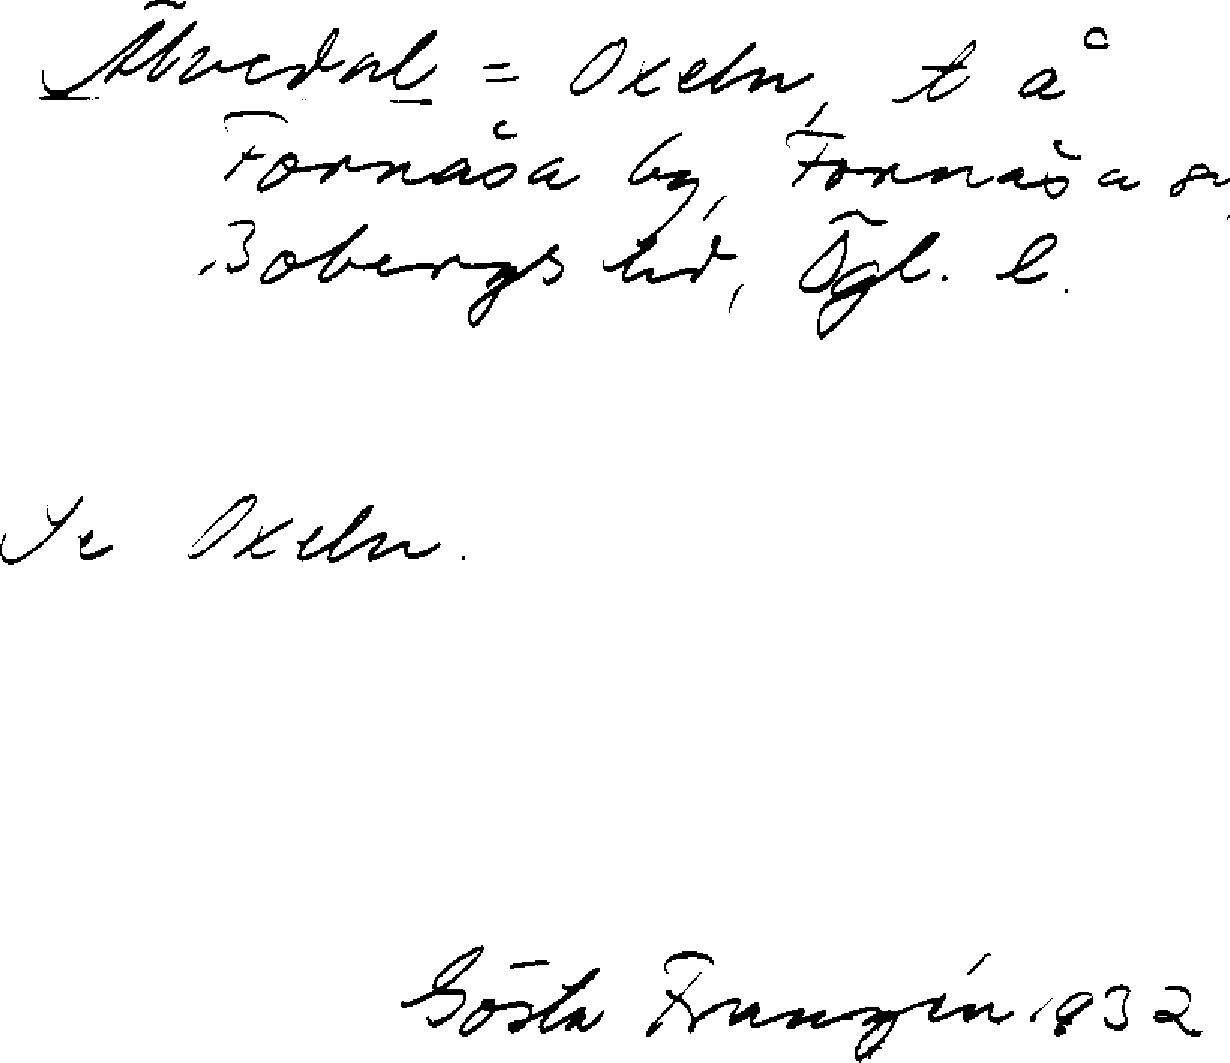 Älvedal = Oxeln, t å
Fornåsa by, Fornåsa sn,
Bobergs hd, Ögl. l.
Se Oxeln.
Gösta Franzén 1932